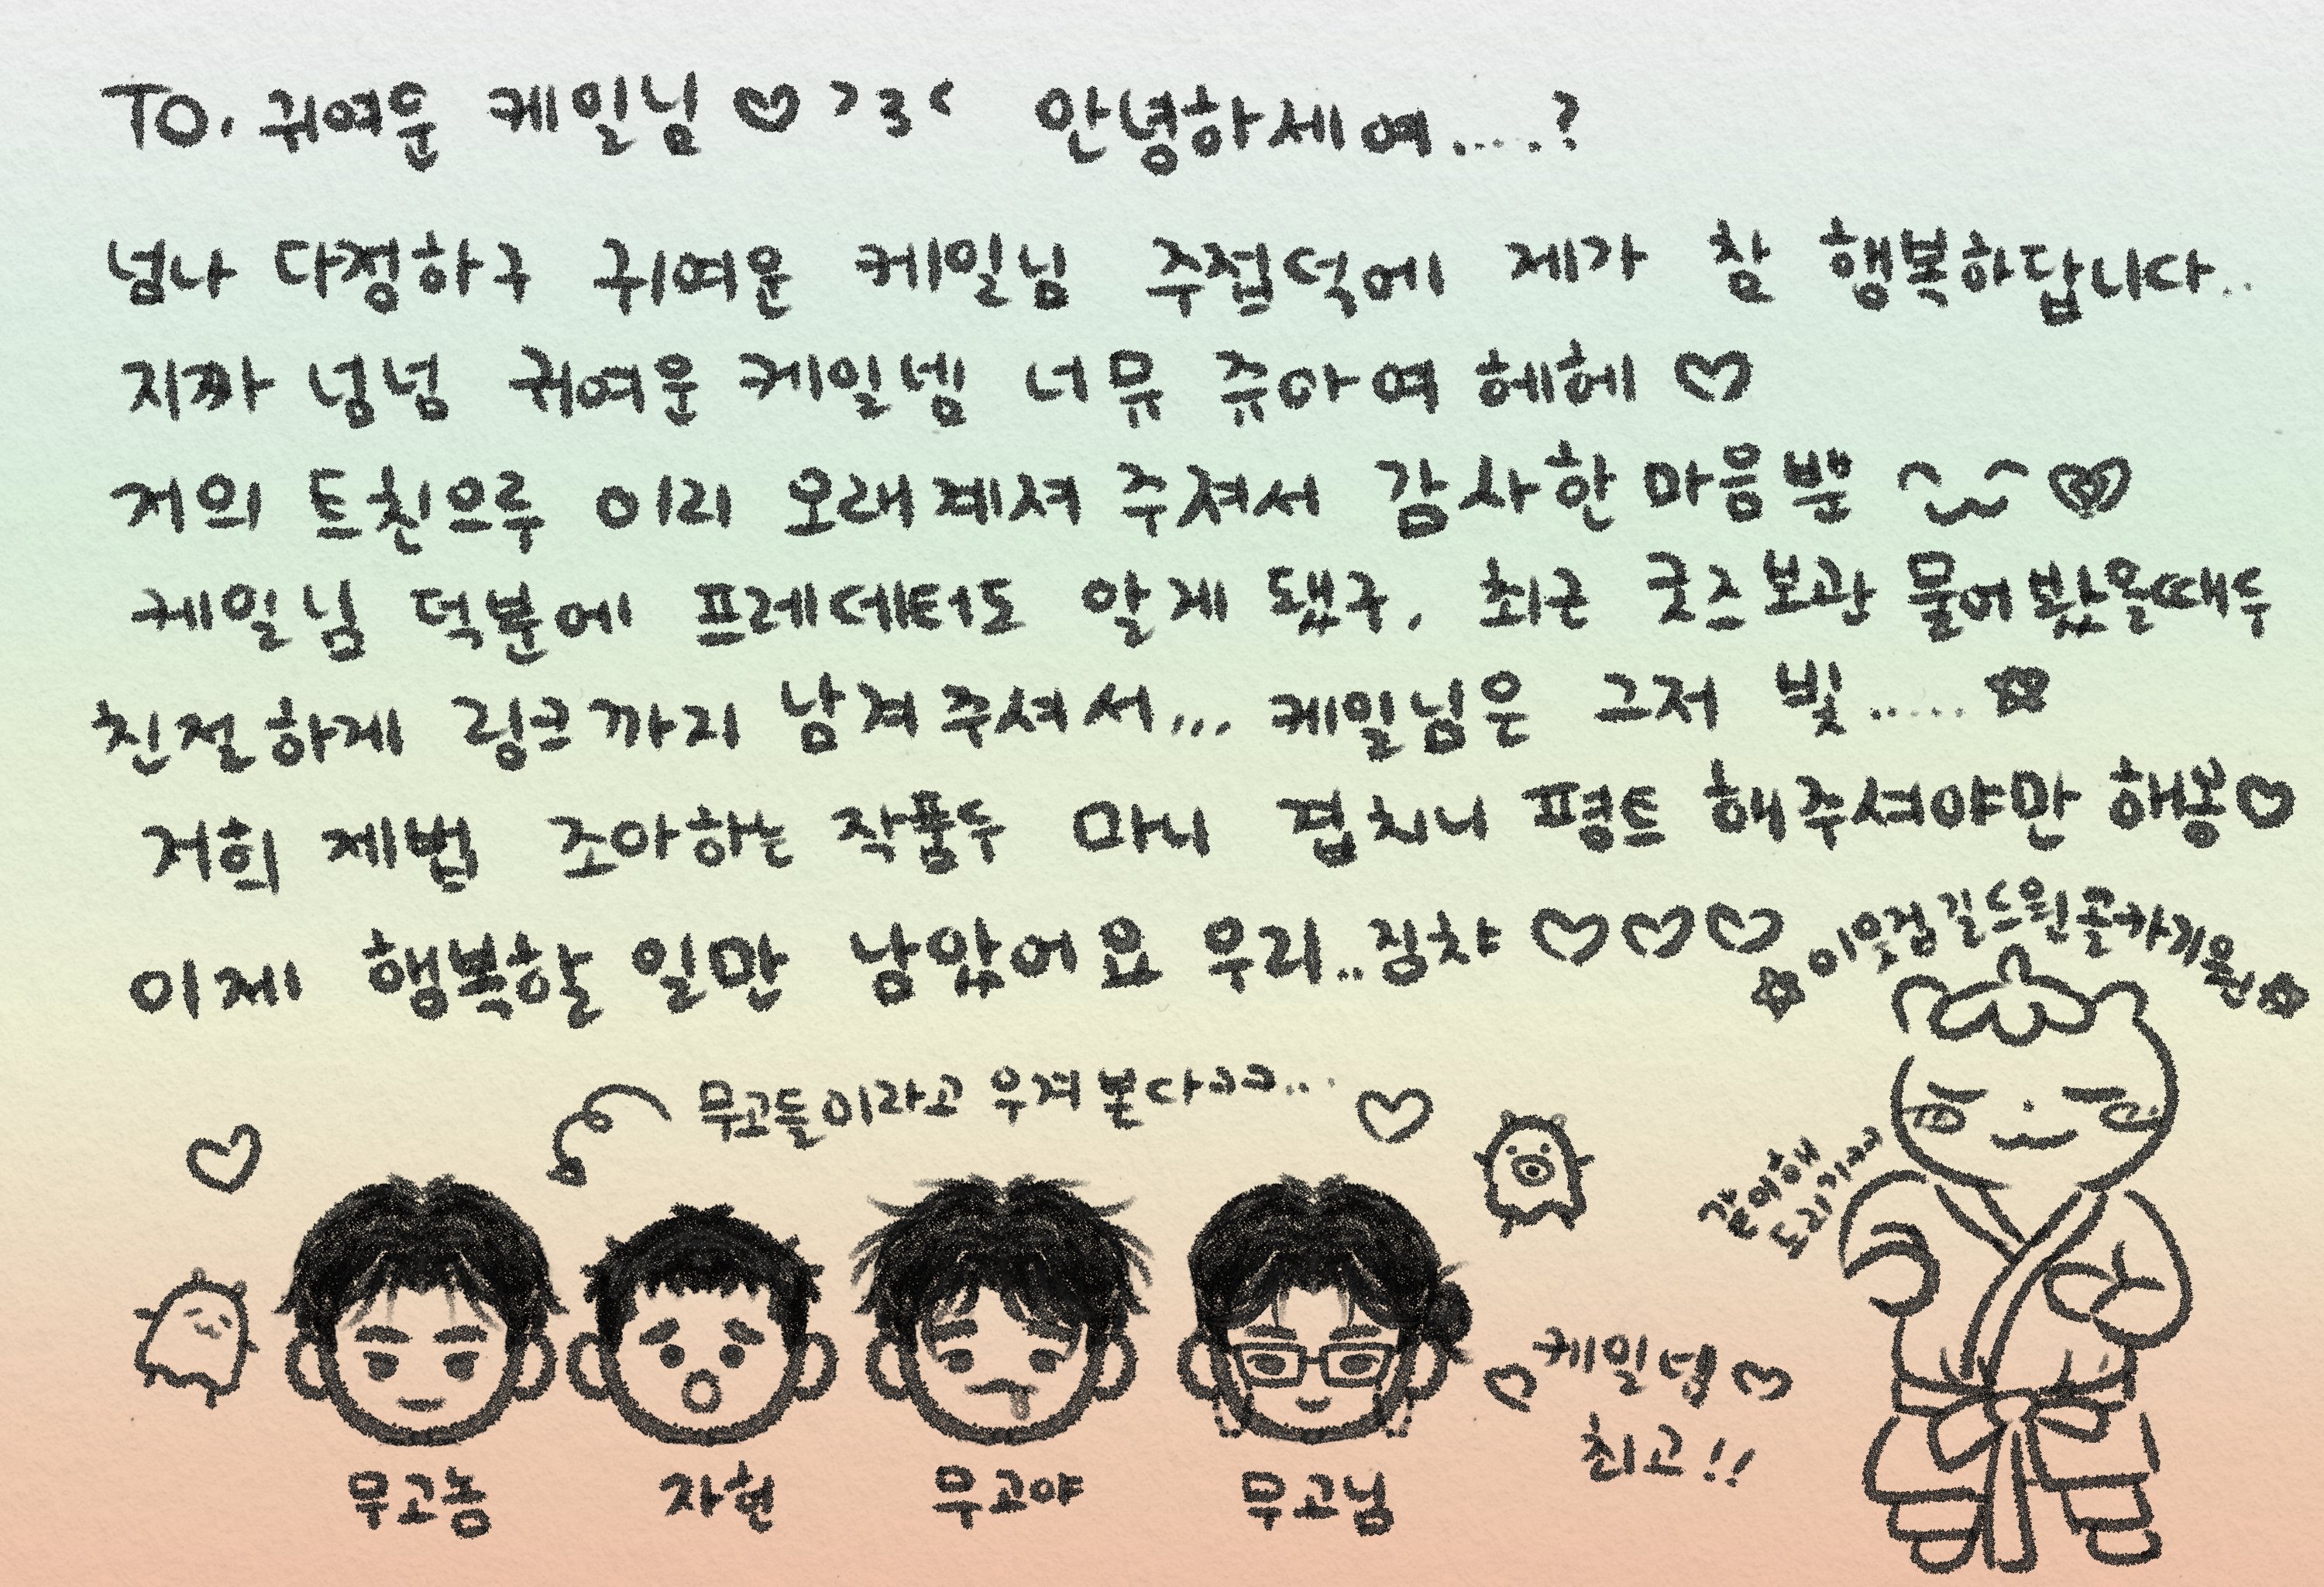 TO. 귀여운 케일님 ♡ >3< 안녕하세여....?
넘나 다정하구 귀여운 케일님 주접덕에 제가 참 행복하답니다..
지짜 넘넘 귀여운 케일넴 너뮤 쥬아여 헤헤 ♡
저의 트친으루 이리 오래 계셔 주셔서 감사한 마음뿐 ♡
케일님 덕분에 프레데터도 알게 됐구, 최근 굿즈보관 물어봤을때두
친절하게 링크까지 남겨주셔서,,, 케일님은 그저 빛..... ☆
저희 제법 조아하는 작품두 마니 겹치니 평트 해주셔야만 해용♡
이제 행복할 일만 남았어요 우리.. 징챠 ♡♡♡
☆이웃검길드원골카기원☆
무고들이라고 우겨본다ㅋㅋ...
♡
잘어해
도리기ㅋㅋ
♡케일넴♡
최고!!
무고놈 자현 무고야 무고님